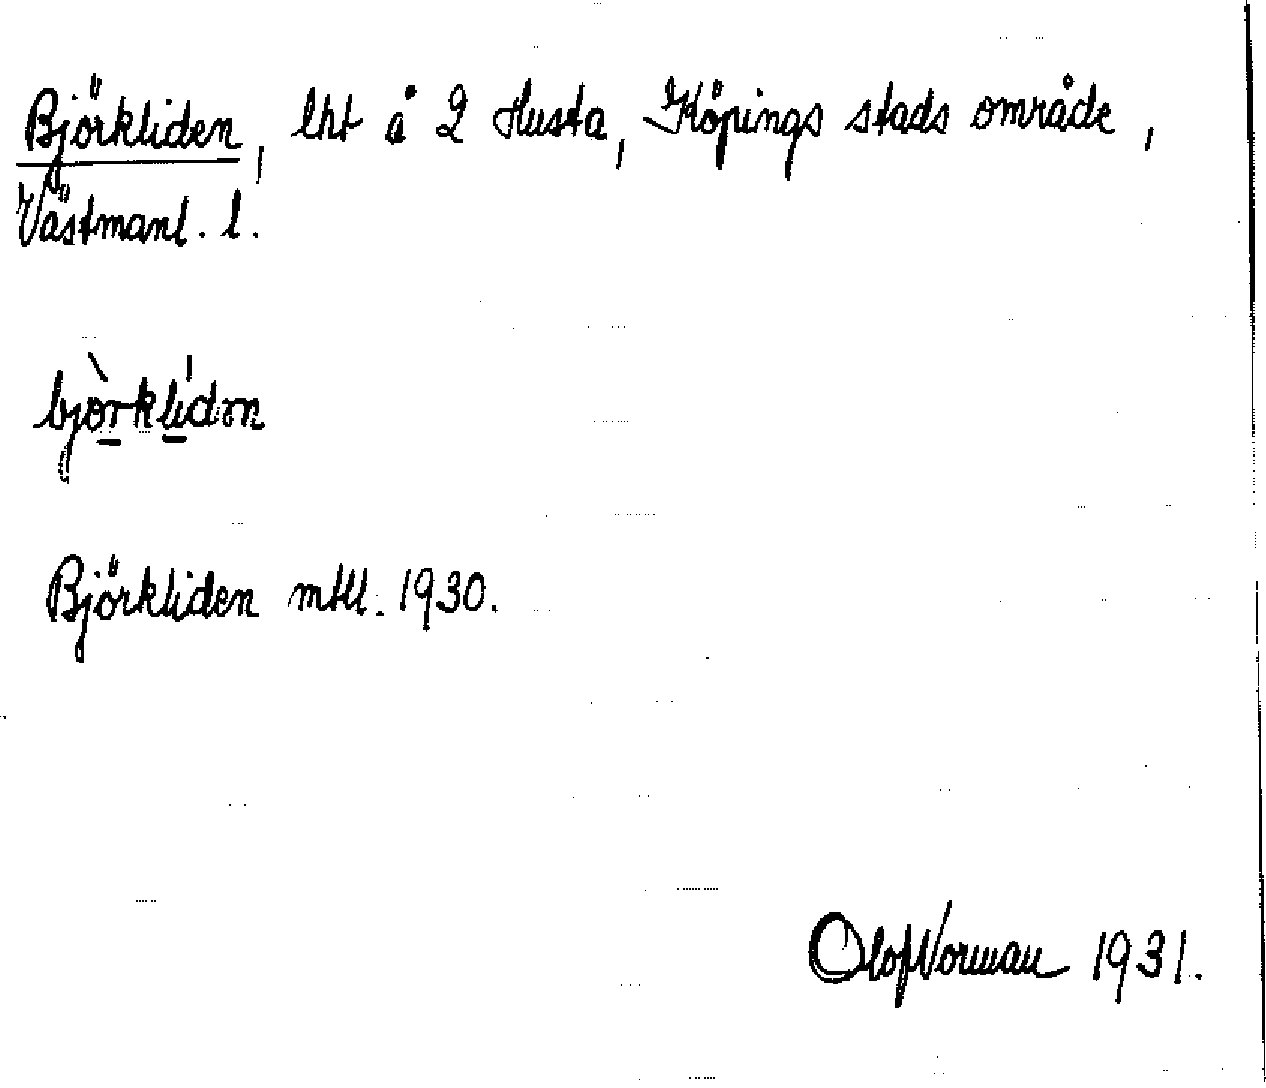 Björkliden, lht å 2 Husta, Köpings stads område,
Västmanl. l.
bjò̱rklí̱dən
Björkliden mtll. 1930.
Olof Norman 1931.